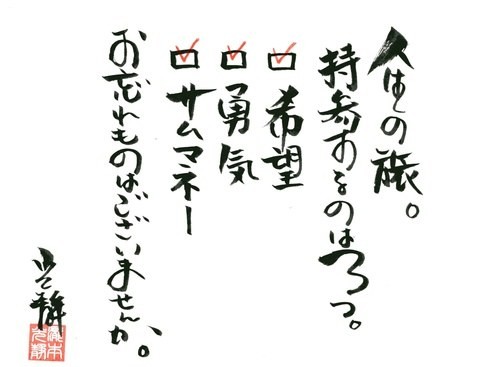 人生の旅。
持参するのは3つ。
希望
勇気
サムマネー
お忘れものはございませんか。